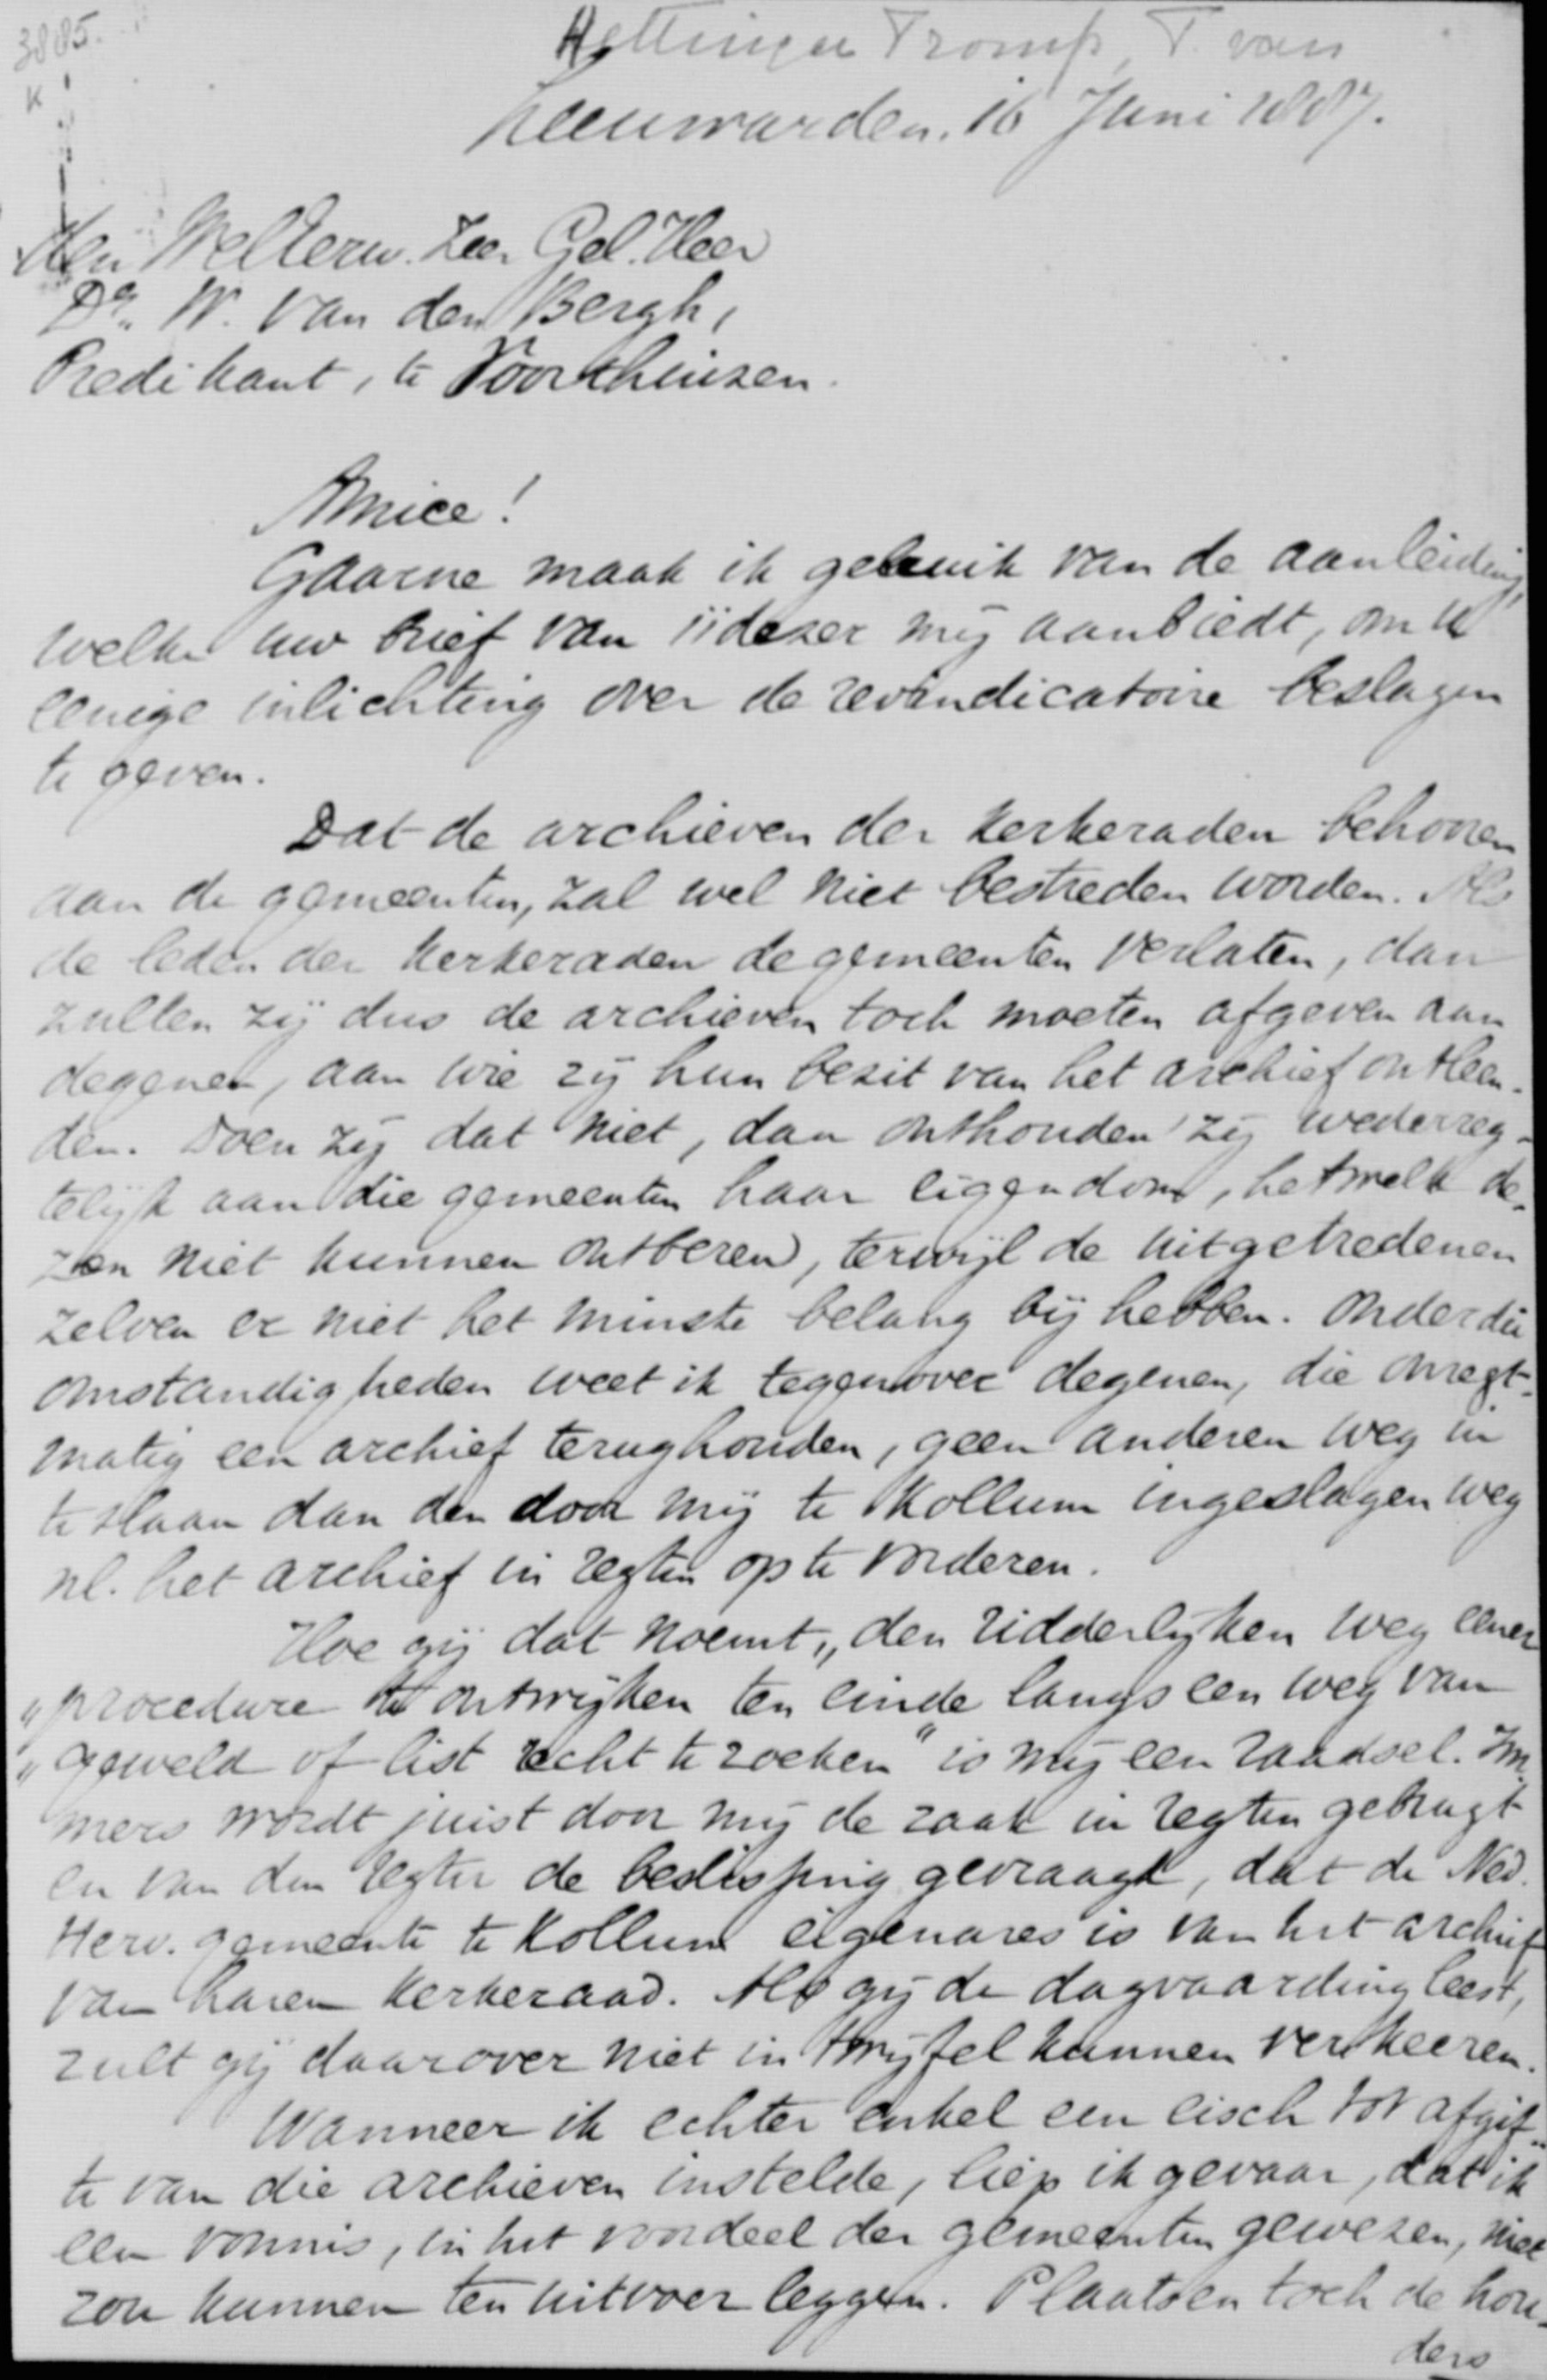 3885.
K
Hettinga Tromp, T. van
Leeuwarden, 16 Juni 1887.
Den Weleerw. Zeer Gel. Heer
Dr. W. van den Bergh,
Predikant, te Voorthuizen.
Amice!
Gaarne maak ik gebruik van de aanleiding,
welke uw brief van 11 dezer mij aanbiedt, om U
eenige inlichting over de revindicatoire beslagen
te geven.
Dat de archieven der kerkeraden behooren
aan de gemeenten, zal wel niet bestreden worden. Als
de leden der kerkeraden de gemeenten verlaten, dan
zullen zij dus de archieven toch moeten afgeven aan
degenen, aan wie zij hun bezit van het archief ontleen-
den. Doen zij dat niet, dan onthouden zij wederreg-
telijk aan die gemeenten haar eigendom, hetwelk de-
zen niet kunnen ontberen, terwijl de uitgetredenen
zelven er niet het minste belang bij hebben. Onder die
omstandigheden weet ik tegenover degenen, die onregt-
matig een archief terughouden, geen anderen weg in
te slaan dan den door mij te Kollum ingeslagen weg
nl. het archief in regten op te vorderen.
Hoe gij dat noemt, „den ridderlijken weg eener
„procedure te ontwijken ten einde langs een weg van
„geweld of list recht te zoeken" is mij een raadsel. Im-
mers wordt juist door mij de zaak in regten gebragt
en van den regter de beslissing gevraagd, dat de Ned.
Herv. gemeente te Kollum eigenares is van het archief
van haren kerkeraad. Als gij de dagvaarding leest,
zult gij daarover niet in twijfel kunnen verkeeren.
Wanneer ik echter enkel een eisch tot afgif-
te van die archieven instelde, liep ik gevaar, dat ik
een vonnis, in het voordeel der gemeenten gewezen, niet
zou kunnen ten uitvoer leggen. Plaatsen toch de hou-
ders